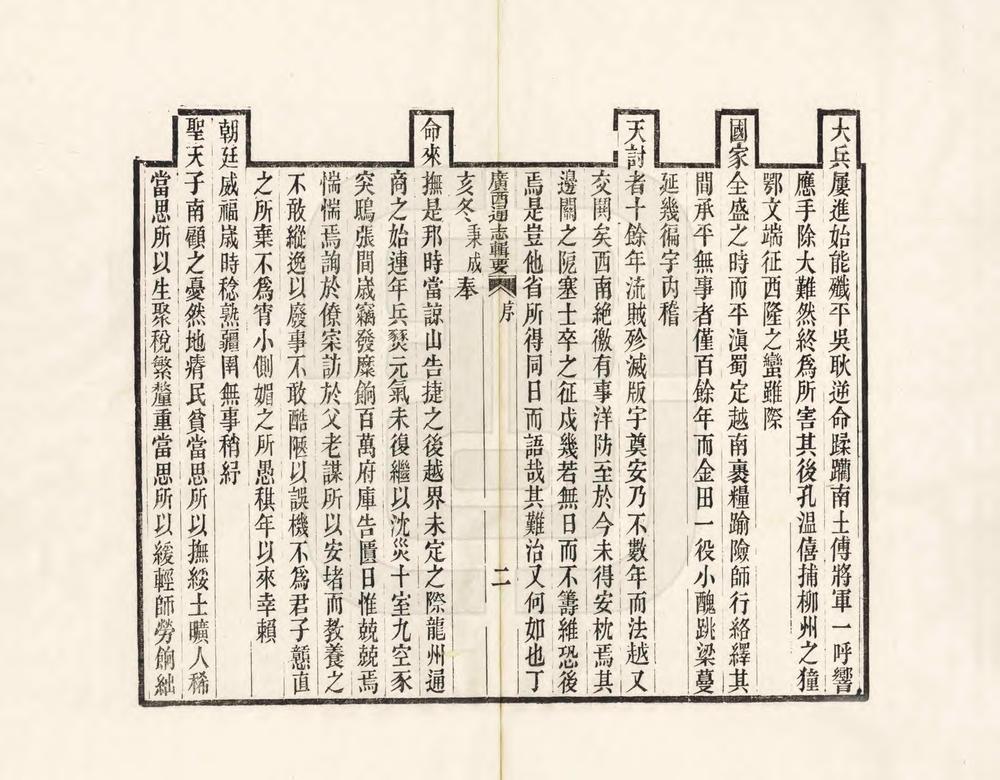 大兵屢進始能殲平吳耿逆命蹂躪南土傅將軍一呼響
應手除大難然終爲所害其後孔溫僖捕柳州之獞
鄂文端征西隆之蠻雖際
國家全盛之時而平滇蜀定越南裹糧踰險師行絡繹其
間承平無事者僅百餘年而金田一役小醜跳梁蔓
延幾徧宇內稽
天討者十餘年流賊殄滅版宇奠安乃不數年而法越又
交鬨矣西南絶徼有事洋防至於今未得安枕焉其
邊關之阨塞士卒之征戍幾若無日而不籌維恐後
焉是豈他省所得同日而語哉其難治又何如也丁
廣西通志輯要 序 二
亥冬秉成奉
命來撫是邦時當諒山告捷之後越界未定之際龍州通
商之始連年兵燹元氣未復繼以沈災十室九空豕
突鴟張間歲竊發糜餉百萬府庫告匱日惟兢兢焉
惴惴焉詢於僚寀訪於父老謀所以安堵而教養之
不敢縱逸以廢事不敢酷陿以誤機不爲君子戇直
之所棄不爲宵小側媚之所愚稘年以來幸賴
朝廷威福歲時稔熟疆圉無事稍紓
聖天子南顧之憂然地瘠民貧當思所以撫綏土曠人稀
當思所以生聚稅繁釐重當思所以緩輕師勞餉絀